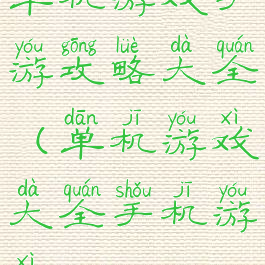 yóu gōng lüè dà quán
游攻略大全
dān jī yóu xì
（单机游戏
dà quán shǒu jī yóu
大全手机游
xì